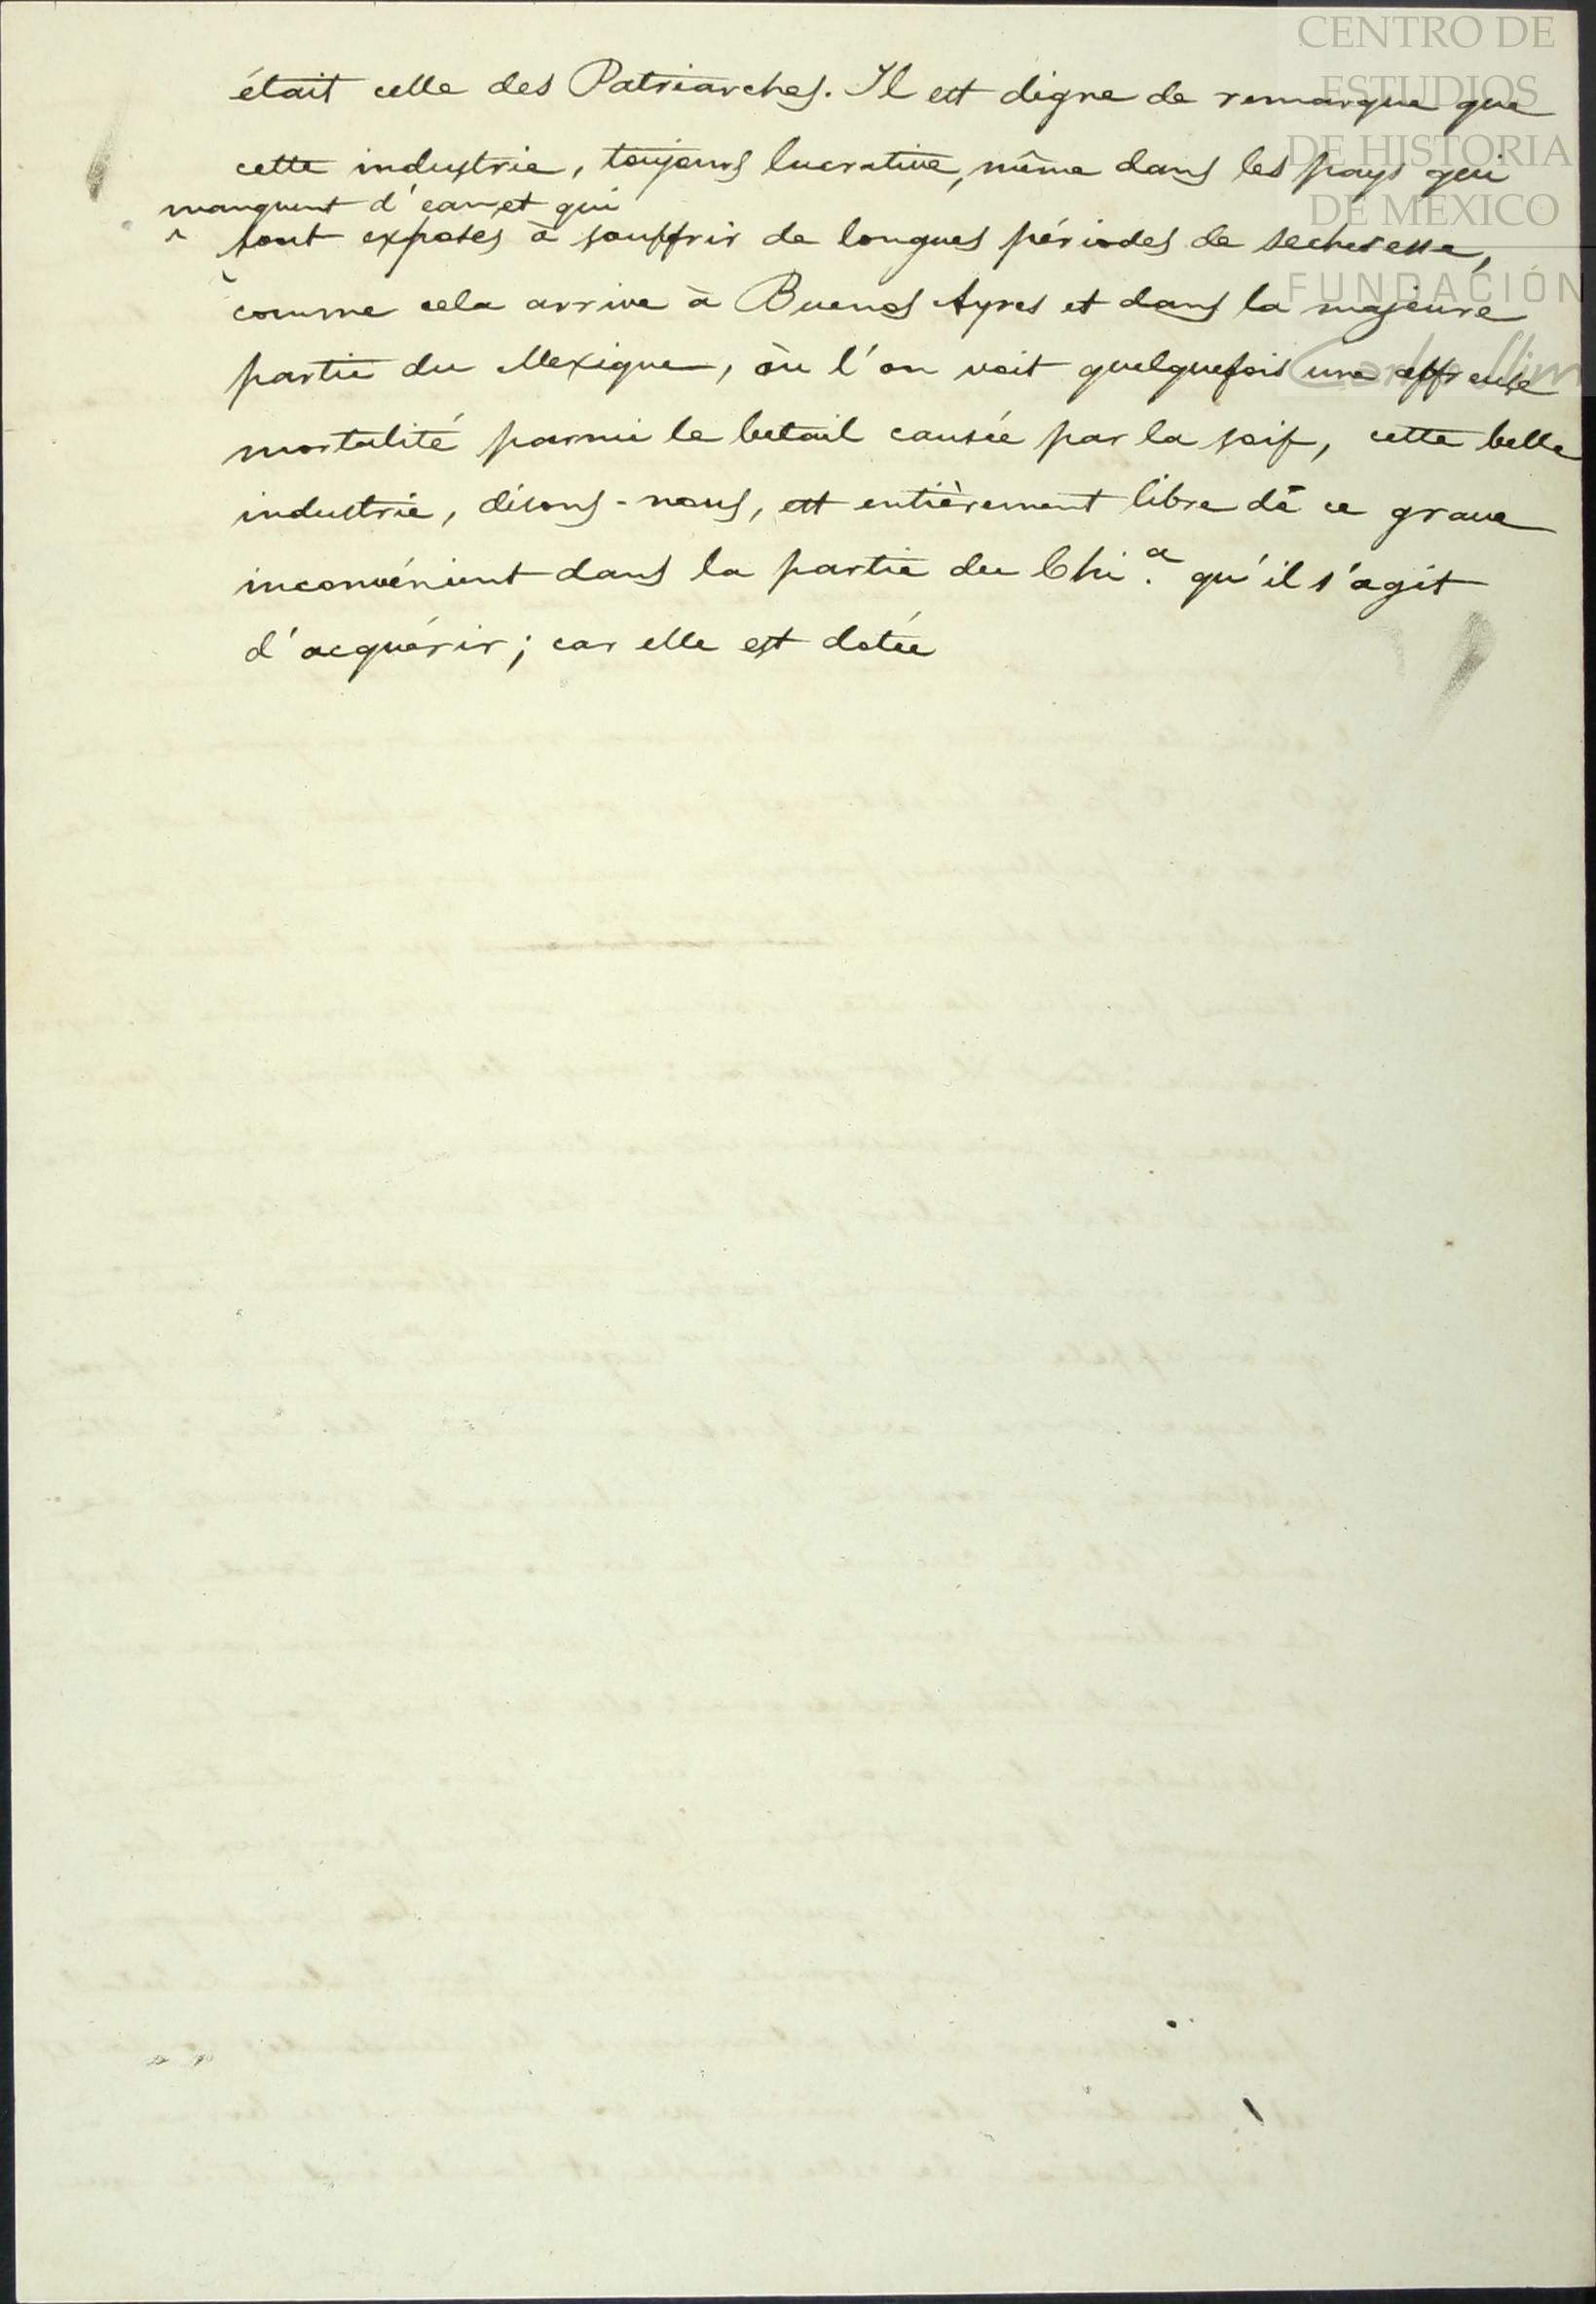 CENTRO DE
ESTUDIOS
DE HISTORIA
DE MÉXICO
FUNDACIÓN
Carlos Slim
était celle des Patriarches. Il est digne de remarque que
cette industrie, toujours lucrative, même dans les pays qui
manquent d'eau et qui
sont exposés à souffrir de longues périodes de secheresse,
comme cela arrive à Buenos Ayres et dans la majeure
partie du Mexique, où l'on voit quelquefois une affreuse
mortalité parmi le betail causée par la soif, cette belle
industrie, disons-nous, est entièrement libre de ce grave
inconvénient dans la partie du Chi.a qu'il s'agit
d'acquérir; car elle est dotée